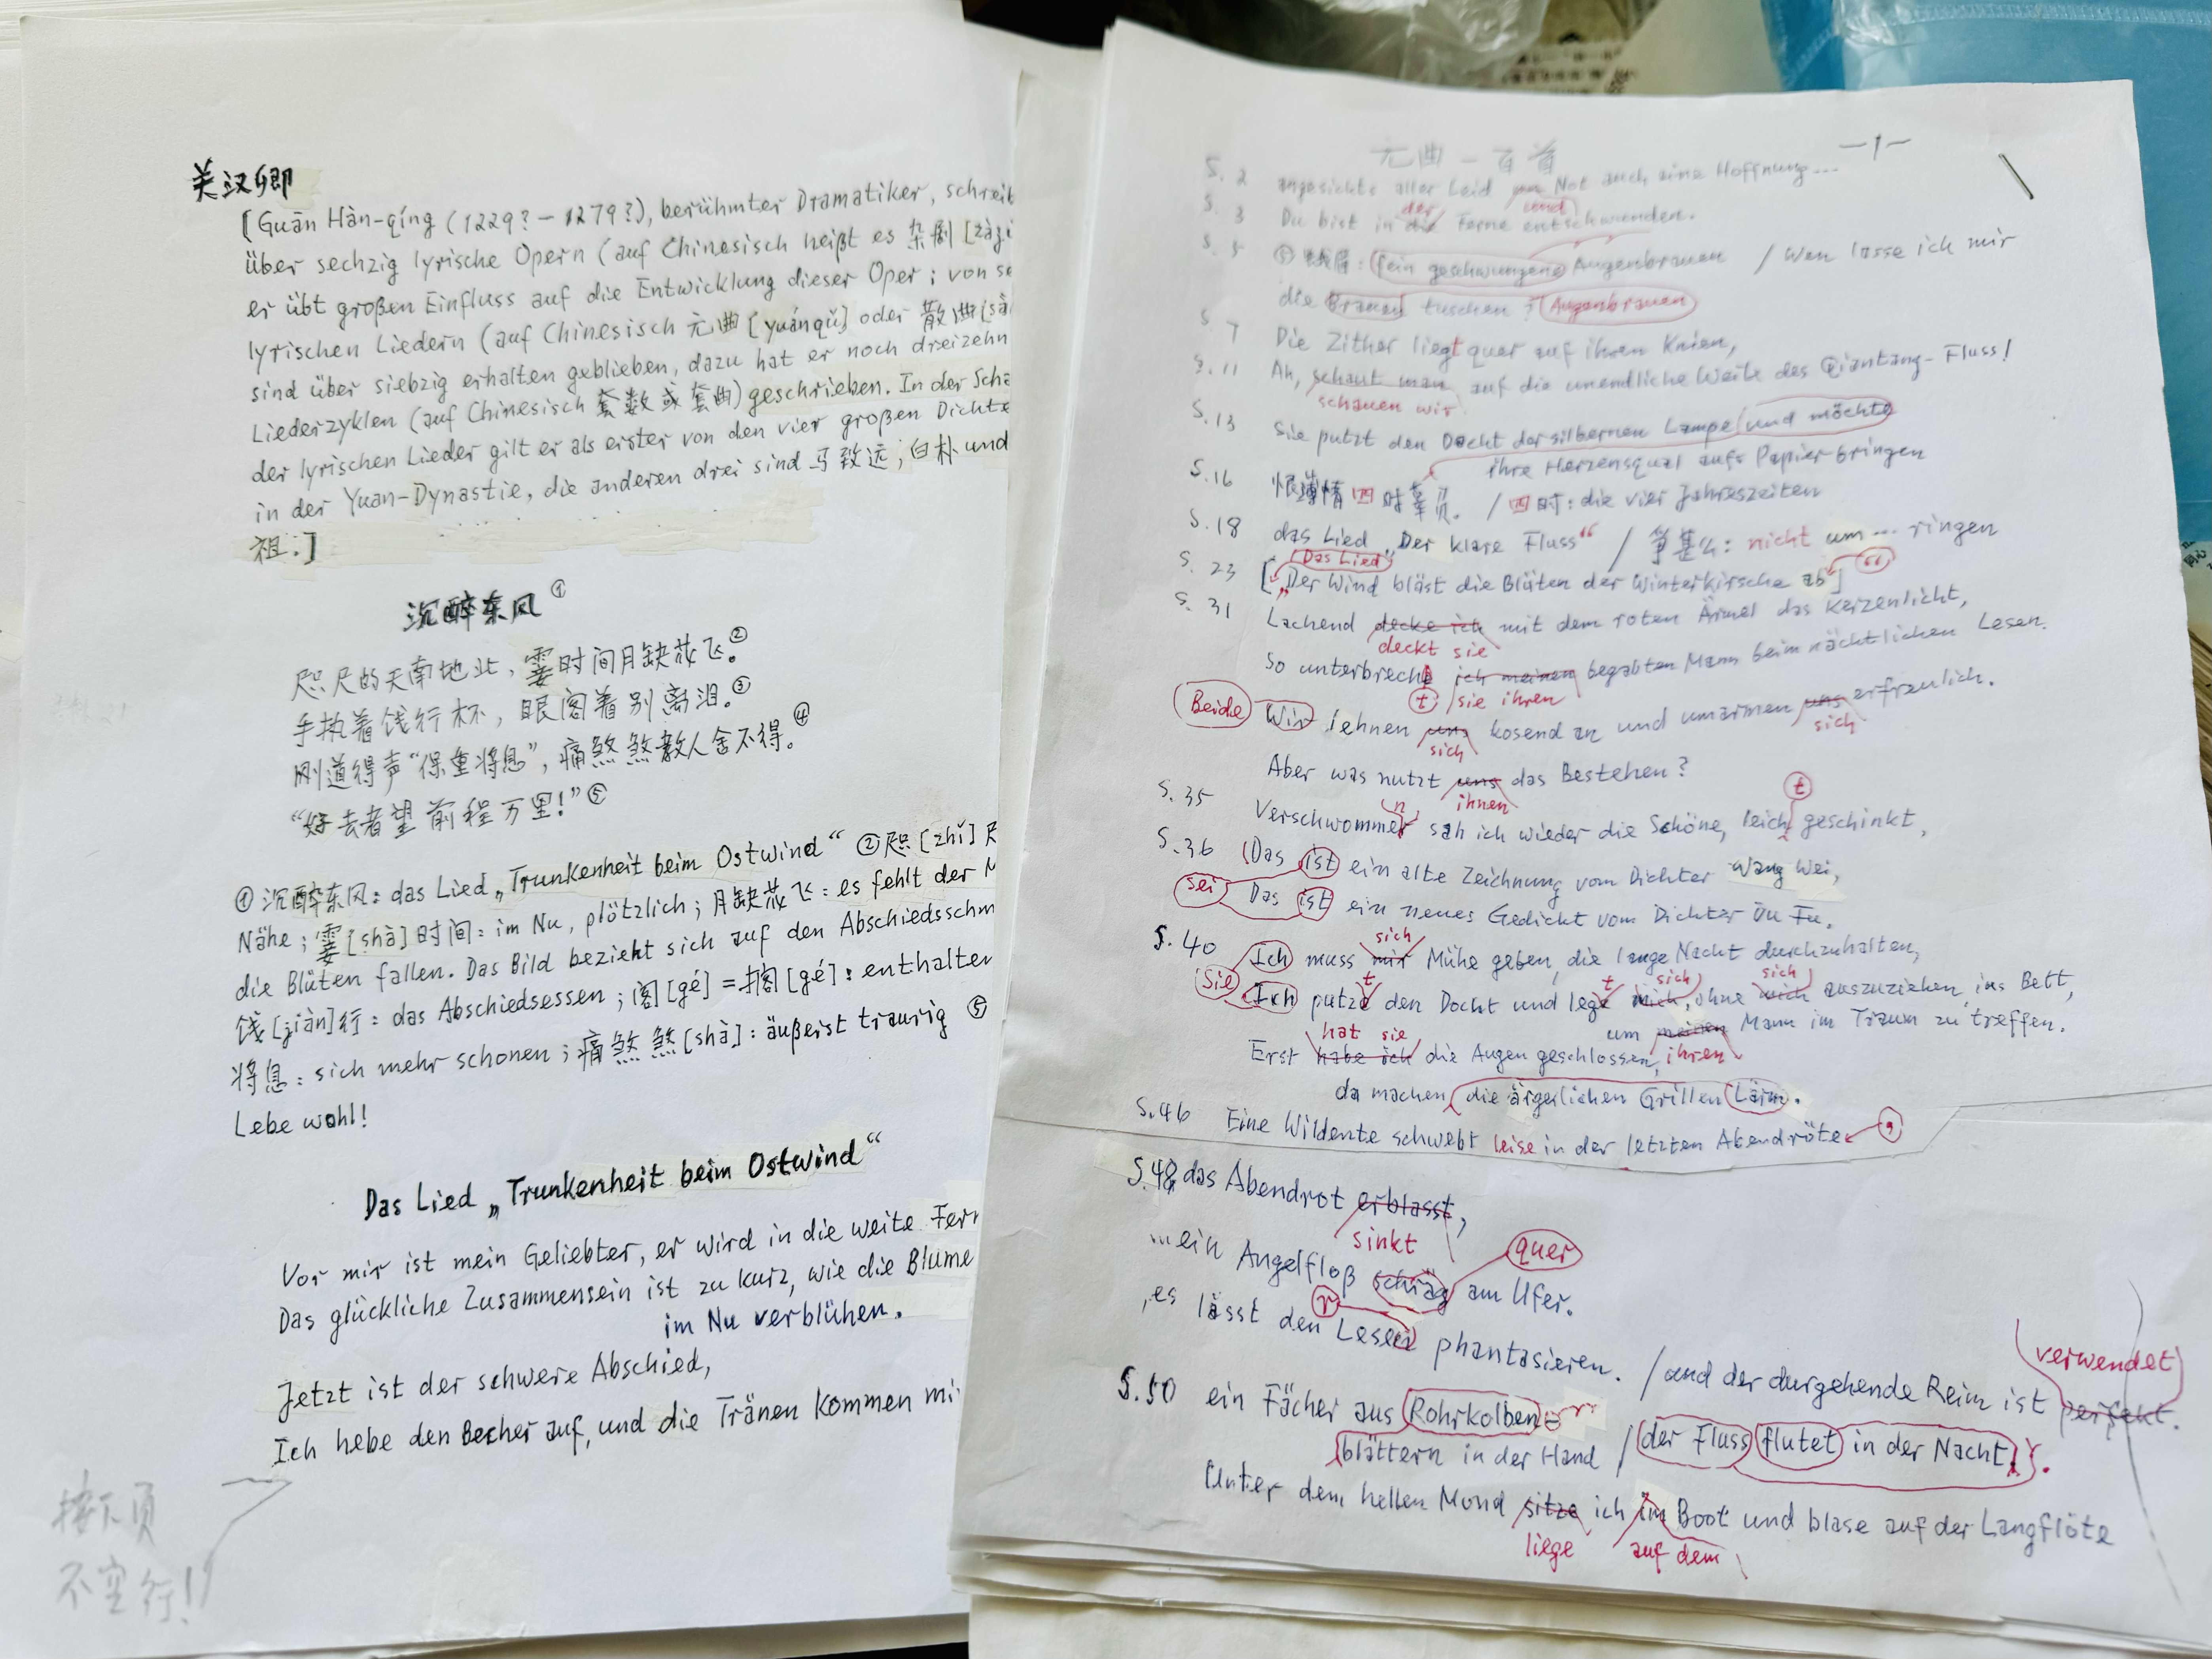 关汉卿
[Guān Hàn-qíng (1229?-1279?), berühmter Dramatiker, schreib
über sechzig lyrische Opern (auf Chinesisch heißt es 杂剧 [zájù
er übt großen Einfluss auf die Entwicklung dieser Oper; von se
lyrischen Liedern (auf Chinesisch 元曲 [yuánqǔ] oder 散曲 [sǎ
sind über siebzig erhalten geblieben, dazu hat er noch dreizehn
Liederzyklen (auf Chinesisch 套数或套曲) geschrieben. In der Scha
der lyrischen Lieder gilt er als erster von den vier großen Dichte
in der Yuan-Dynastie, die anderen drei sind 马致远, 白朴 und
祖.]
沉醉东风①
咫尺的天南地北, 霎时间月缺花飞。②
手执着饯行杯, 眼阁着别离泪。③
刚道得声“保重将息”, 痛煞煞教人舍不得。④
“好去者望前程万里!”⑤
① 沉醉东风: das Lied „Trunkenheit beim Ostwind“ ② 咫 [zhǐ] 尺
Nähe; 霎 [shà] 时间: im Nu, plötzlich; 月缺花飞: es fehlt der M
die Blüten fallen. Das Bild bezieht sich auf den Abschiedsschm
饯 [jiàn] 行: das Abschiedsessen; 阁 [gé] = 搁 [gé]: enthalten
将息: sich mehr schonen; 痛煞煞 [shà]: äußerst traurig ⑤
Lebe wohl!
Das Lied „Trunkenheit beim Ostwind“
Vor mir ist mein Geliebter, er wird in die weite Fern
Das glückliche Zusammensein ist zu kurz, wie die Blume
im Nu verblühen.
Jetzt ist der schwere Abschied,
Ich hebe den Becher auf, und die Tränen kommen mi
接下页
不空行!
元曲一百首 -1-
S. 2 angesichts aller Leid Not auch eine Hoffnung...
der und
S. 3 Du bist in die Ferne entschwunden.
S. 5 fein geschwungene Augenbrauen / Wen lasse ich mir
die Brauen tuschen? Augenbrauen
S. 7 Die Zither liegt quer auf ihren Knien,
S. 11 Ah, schaut man auf die unendliche Weite des Qiantang-Fluss!
schauen wir
S. 13 Sie putzt den Docht der silbernen Lampe und möchte
ihre Herzensqual aufs Papier bringen
S. 16 恨薄情四时辜负. / 四时: die vier Jahreszeiten
S. 18 das Lied „Der klare Fluss“ / 争甚么: nicht um ... ringen
Das Lied
S. 23 [„Der Wind bläst die Blüten der Winterkirsche ab“]
S. 31 Lachend decke ich mit dem roten Ärmel das Kerzenlicht,
deckt sie
So unterbrech ich meinen begabten Mann beim nächtlichen Lesen.
t sie ihren
Beide Wir lehnen uns kosend an und umarmen uns erfreulich.
sich sich
Aber was nutzt uns das Bestehen?
ihnen
S. 35 Verschwommen sah ich wieder die Schöne, leicht geschinkt,
S. 36 Das ist ein alte Zeichnung vom Dichter Wang Wei,
sei Das ist ein neues Gedicht vom Dichter Du Fu.
sich
S. 40 Ich muss mir Mühe geben, die lange Nacht durchzuhalten,
Sie t t sich sich
Ich putze den Docht und lege mich, ohne mich auszuziehen, ins Bett,
um meinen Mann im Traum zu treffen.
hat sie
Erst habe ich die Augen geschlossen, ihren
da machen die ärgerlichen Grillen Lärm.
S. 46 Eine Wildente schwebt leise in der letzten Abendröte,
S. 48 das Abendrot erblasst,
sinkt quer
...ein Angelfloß schräg am Ufer.
r
, es lässt den Lesen phantasieren. / und der durgehende Reim ist perfekt.
verwendet
S. 50 ein Fächer aus Rohrkolben-
blättern in der Hand / der Fluss flutet in der Nacht.
Unter dem hellen Mond sitze ich im Boot und blase auf der Langflöte
liege auf dem